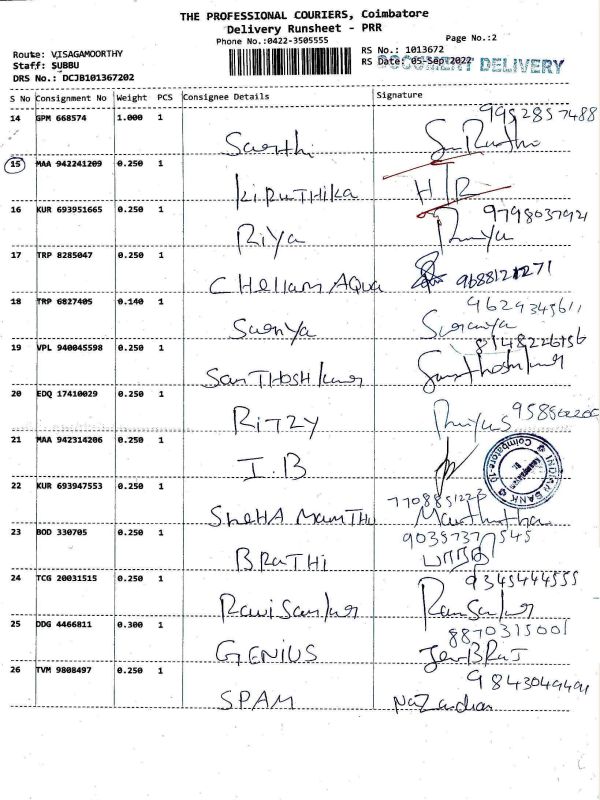 THE PROFESSIONAL COURIERS, Coimbatore
Delivery Runsheet - PRR
Phone No.:0422-3505555
Page No.:2
Route: VISAGAMOORTHY
RS No.: 1013672
Staff: SUBBU
RS Date: 05-Sep-2022
DOCUMENT DELIVERY
DRS No.: DCJB101367202
S No Consignment No Weight PCS Consignee Details Signature
14 GPM 668574 1.000 1 9952857488
Sarthi
15 MAA 942241209 0.250 1
KIRUTHIKA
16 KUR 693951665 0.250 1 9798037921
RiYa Priya
17 TRP 8285047 0.250 1
CHellam AQUA 9688121271
18 TRP 6827405 0.140 1 9629345611
Saonya
19 VPL 940045598 0.250 1 8148226156
SanTHosh kumar Santhoshkumar
20 EDQ 17410029 0.250 1
RiTZY
21 MAA 942314206 0.250 1
I.B
INDIAN BANK
Coimbatore-10
22 KUR 693947553 0.250 1 7708851223
SNeHA MamTHu
23 BOD 330705 0.250 1 9035737545
BRaTHi பாரதி
24 TCG 20031515 0.250 1 9345444555
RaviSankar
25 DDG 4466811 0.300 1 8870315001
GENIUS
26 TVM 9808497 0.250 1
SPAM